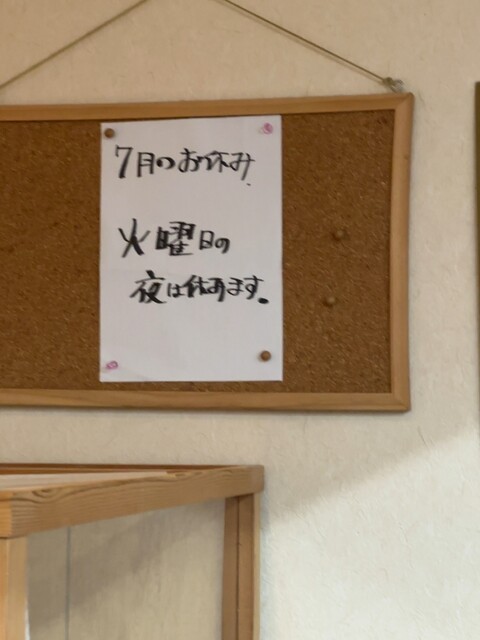 7月のお休み
火曜日の
夜は休みます。